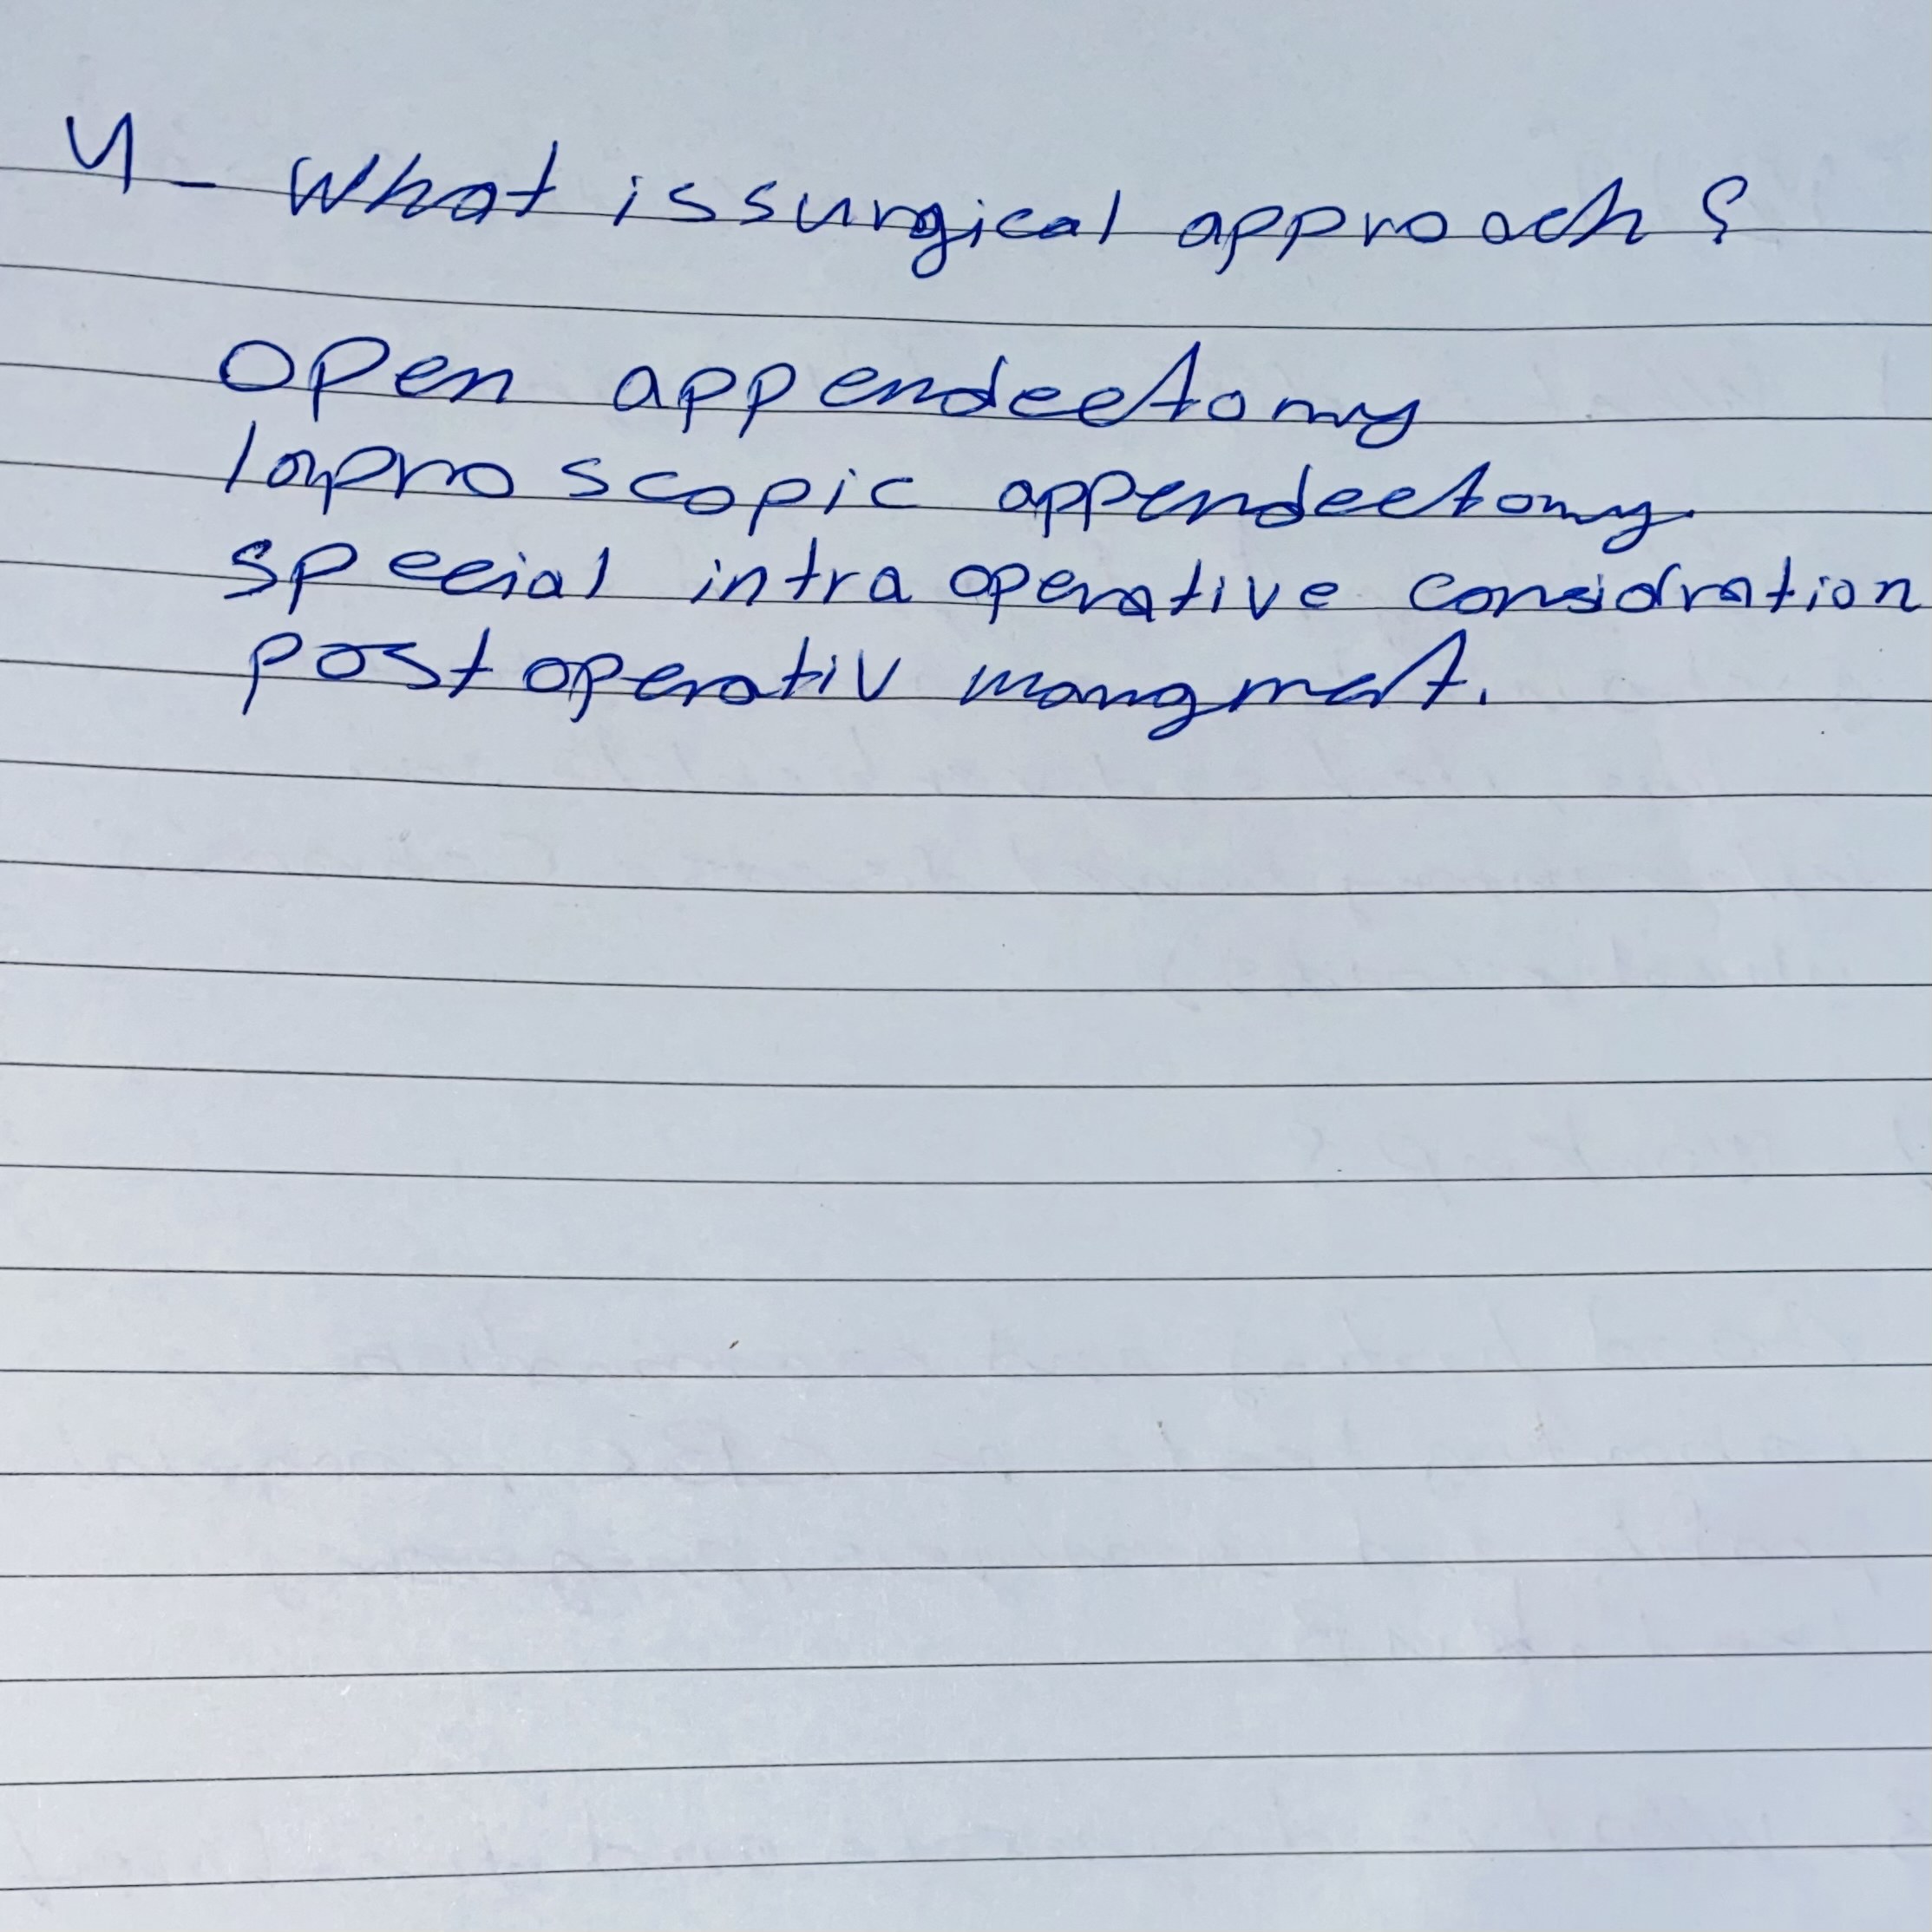 4- What is surgical approach?
open appendectomy
laproscopic appendectomy.
special intra operative considration
post operativ mangment.